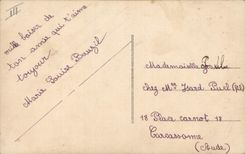 III
mille baises de
ton amie qui t'aime
toujour
Marie Louise
Mademoiselle
chez Mr Izard Puel
18 Place carnot 18
Carcassonne
(Aude)